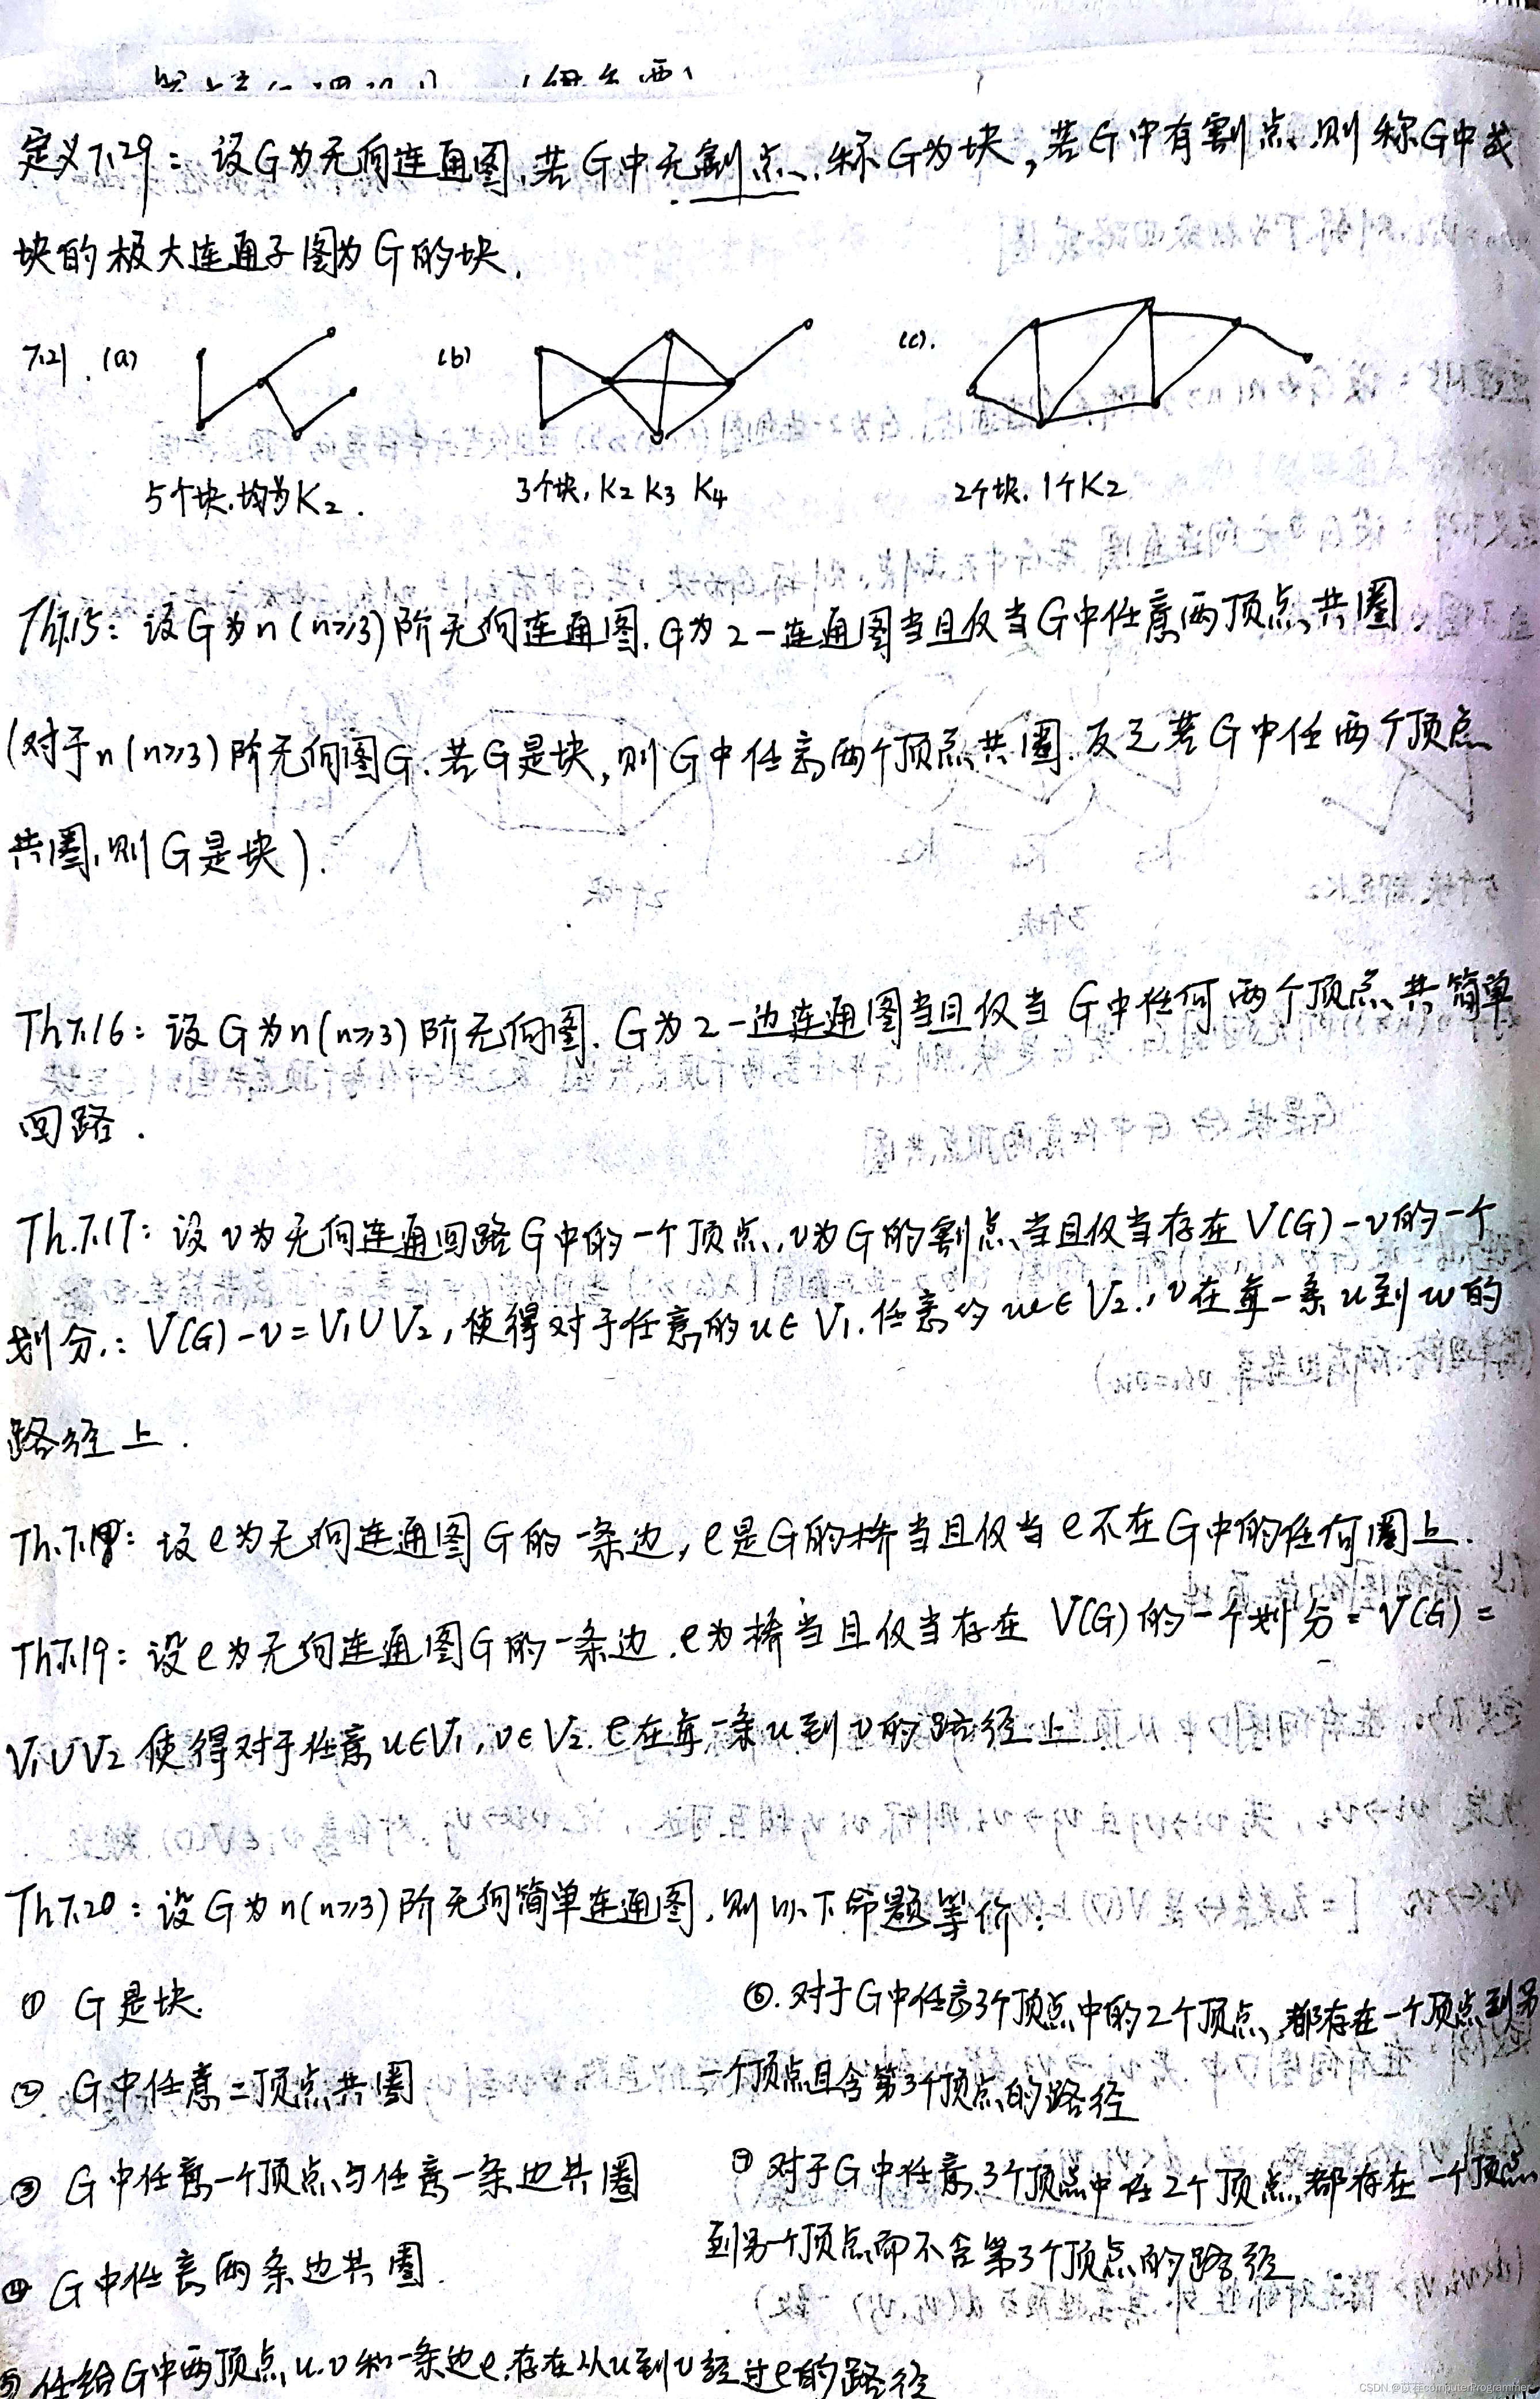 定义7.29：设G为无向连通图，若G中无割点，称G为块，若G中有割点，则称G中成
块的极大连通子图为G的块．
7.21．(a) (b) (c)．
5个块．均为K2． 3个块，K2 K3 K4 2个块．1个K2
Th7.15：设G为n(n≥3)阶无向连通图．G为2-连通图当且仅当G中任意两顶点共圈．
(对于n(n≥3)阶无向图G．若G是块，则G中任意两个顶点共圈．反之若G中任两个顶点
共圈，则G是块)．
Th7.16：设G为n(n≥3)阶无向图．G为2-边连通图当且仅当G中任何两个顶点共简单
回路．
Th.7.17：设v为无向连通回路G中的一个顶点，v为G的割点当且仅当存在V(G)-v的一个
划分：V(G)-v=V1∪V2，使得对于任意的u∈V1．任意的w∈V2，v在每一条u到w的
路径上．
Th.7.18：设e为无向连通图G的一条边，e是G的桥当且仅当e不在G中的任何圈上．
Th7.19：设e为无向连通图G的一条边．e为桥当且仅当存在V(G)的一个划分：V(G)=
V1∪V2使得对于任意u∈V1，v∈V2．e在每一条u到v的路径上
Th7.20：设G为n(n≥3)阶无向简单连通图，则以下命题等价：
① G是块．
② G中任意二顶点共圈
③ G中任意一个顶点与任意一条边共圈
④ G中任意两条边共圈．
⑤ 任给G中两顶点u．v和一条边e，存在从u到v经过e的路径
⑥．对于G中任意3个顶点中的2个顶点，都存在一个顶点到另
一个顶点且含第3个顶点的路径
⑦ 对于G中任意3个顶点中任2个顶点，都存在一个顶点
到另一个顶点而不含第3个顶点的路径